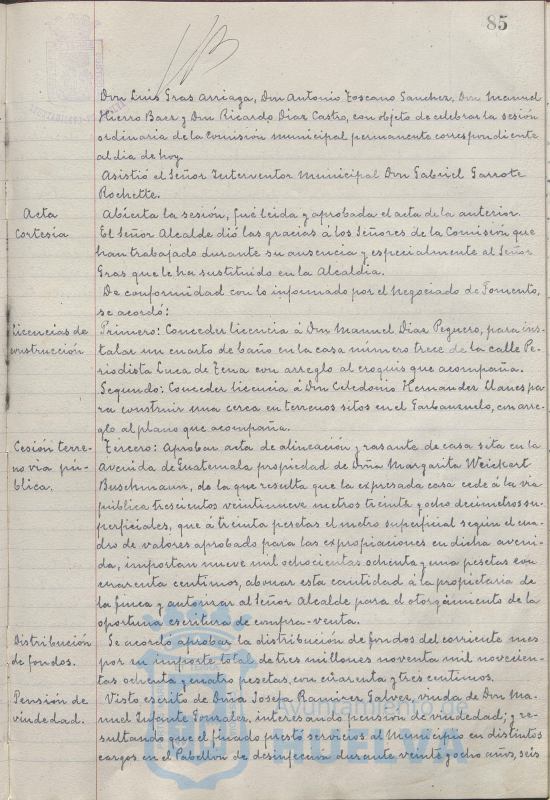 85
Don Luis Gras Arriaga, Don Antonio Toscano Sanchez, Don Manuel
Hierro Baer y Don Ricardo Diaz Castro, con objeto de celebrar la sesión
ordinaria de la Comisión municipal permanente correspondiente
al dia de hoy.
Asistió el Señor Interventor Municipal Don Gabriel Garrote
Rochette.
Acta
Abierta la sesión, fué leida y aprobada el acta de la anterior.
Cortesia
El Señor Alcalde dió las gracias á los Señores de la Comisión que
han trabajado durante su ausencia y especialmente al Señor
Gras que le ha sustituido en la Alcaldia.
De conformidad con lo informado por el Negociado de Fomento,
se acordó:
Licencias de
construcción
Primero: Conceder licencia á Don Manuel Diaz Peguero, para ins-
talar un cuarto de baño en la casa número trece de la calle Pe-
riodista Luca de Tena con arreglo al croquis que acompaña.
Segundo: Conceder licencia á Don Celedonio Hernandez Llanes pa-
ra construir una cerca en terrenos sitos en el Garbanzuelo, con arre-
glo al plano que acompaña.
Cesión terre-
no via pú-
blica.
Tercero: Aprobar acta de alineación y rasante de casa sita en la
Avenida de Guatemala propiedad de Doña Margarita Weickert
Buschmann, de la que resulta que la expresada casa cede á la via
pública trescientos veintinueve metros treinta y ocho decimetros su-
perficiales, que á treinta pesetas el metro superficial según el cua-
dro de valores aprobado para las expropiaciones en dicha aveni-
da, importan nueve mil ochocientas ochenta y una pesetas con
cuarenta centimos, abonar esta cantidad á la propietaria de
la finca y autorizar al Señor Alcalde para el otorgamiento de la
oportuna escritura de compra-venta.
Distribución
de fondos.
Se acordó aprobar la distribución de fondos del corriente mes
por su importe total de tres millones noventa mil novecien-
tas ochenta y cuatro pesetas, con cuarenta y tres centimos.
Pensión de
viudedad.
Visto escrito de Doña Josefa Ramirez Galvez, viuda de Don Ma-
nuel Infante Gonzalez, interesando pensión de viudedad; y re-
sultando que el finado prestó servicios al Municipio en distintos
cargos en el Pabellón de desinfección durante veintiocho años, seis
Ayuntamiento de
HUELVA